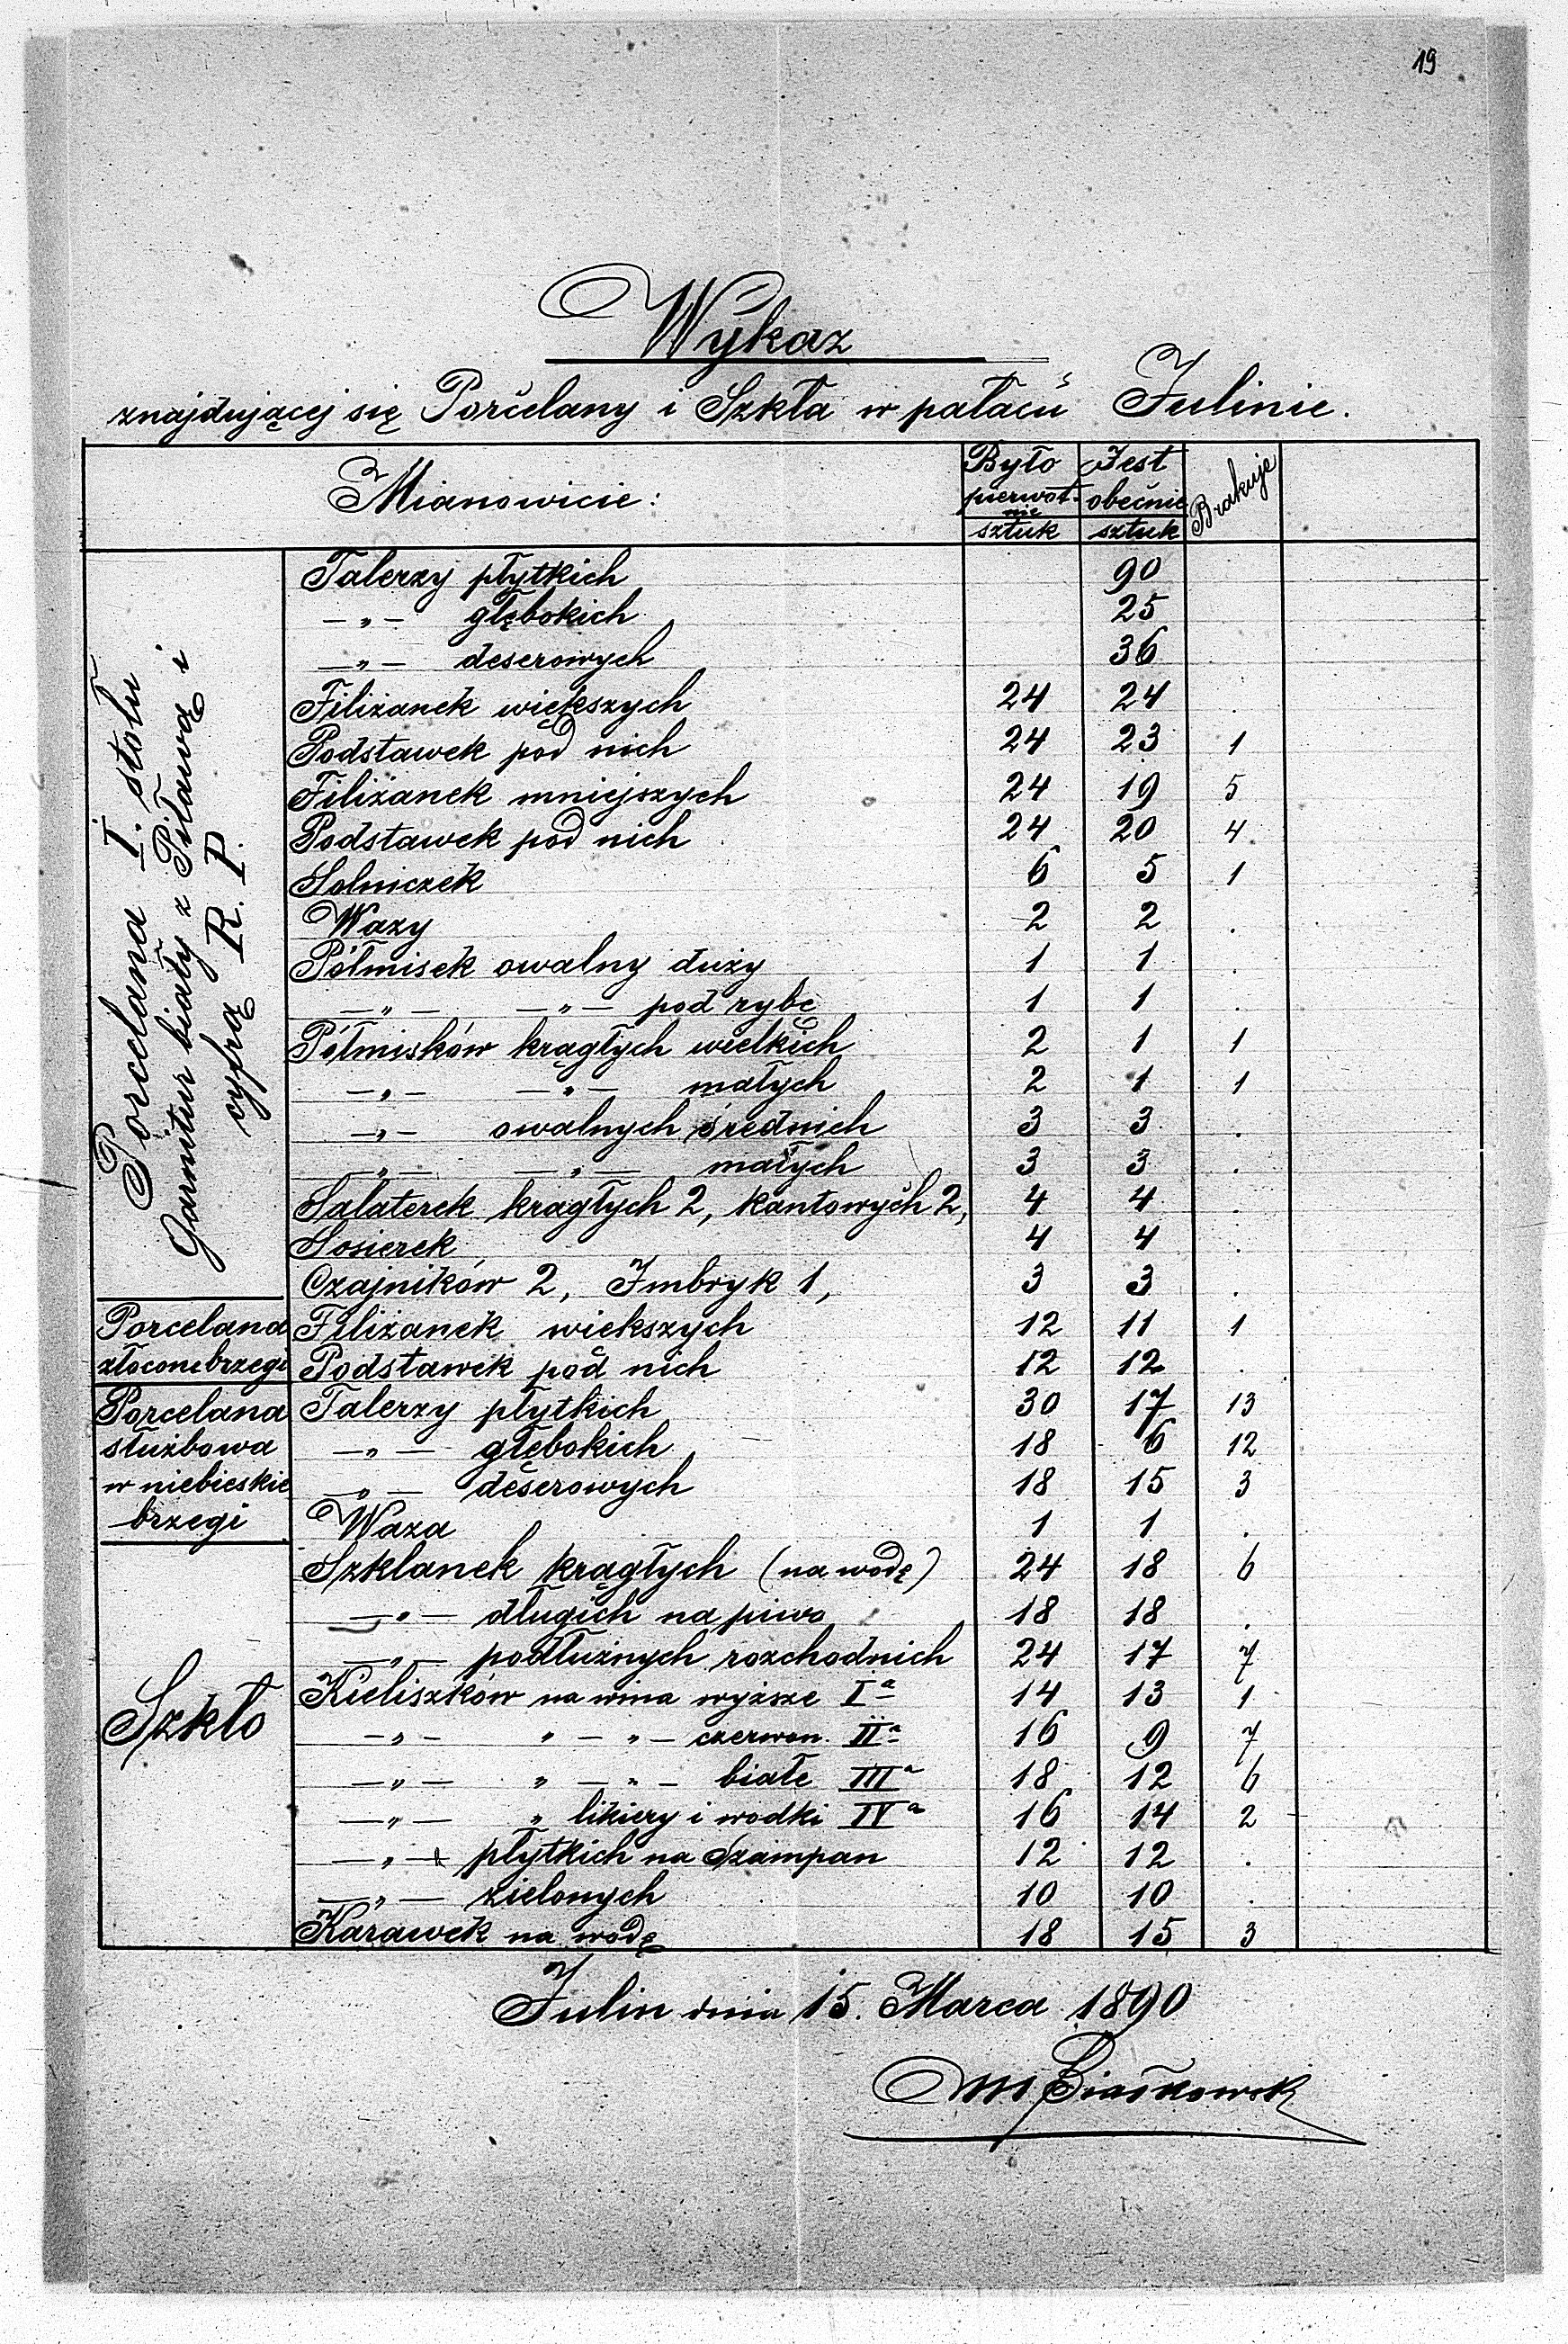 19
Wykaz
znajdującej się Porcelany i Szkła w pałacu Julinie.
Mianowicie: Było pierwot- nie sztuk Jest obecnie sztuk Brakuje
Porcelana I. stołu
Garnitur biały z Pilawą i
cyfrą R. P.
Talerzy płytkich 90
—„— głębokich 25
—„— deserowych 36
Filiżanek większych 24 24 .
Podstawek pod nich 24 23 1
Filiżanek mniejszych 24 19 5
Podstawek pod nich 24 20 4
Solniczek 6 5 1
Wazy 2 2 .
Półmisek owalny duży 1 1 .
—„— —„— pod rybę 1 1 .
Półmisków krągłych wielkich 2 1 1
—„— —„— małych 2 1 1
—„— owalnych średnich 3 3 .
—„— —„— małych 3 3 .
Salaterek krągłych 2, kantowych 2, 4 4 .
Sosierek 4 4 .
Czajników 2, Imbryk 1, 3 3 .
Porcelana Filiżanek większych 12 11 1
złocone brzegi Podstawek pod nich 12 12 .
Porcelana Talerzy płytkich 30 17 13
służbowa —„— głębokich 18 6 12
w niebieskie —„— deserowych 18 15 3
brzegi Waza 1 1 .
Szkło
Szklanek krągłych (na wodę) 24 18 6
—„— długich na piwo 18 18 .
—„— podłużnych rozchodnich 24 17 7
Kieliszków na wina wyższe Iª 14 13 1
—„— „ — „ — czerwon. IIª 16 9 7
—„— „ — „ — białe IIIª 18 12 6
—„— „ likiery i wodki IVª 16 14 2
—„— płytkich na Szampan 12 12 .
—„— zielonych 10 10 .
Karawek na wodę 18 15 3
Julin dnia 15. Marca 1890